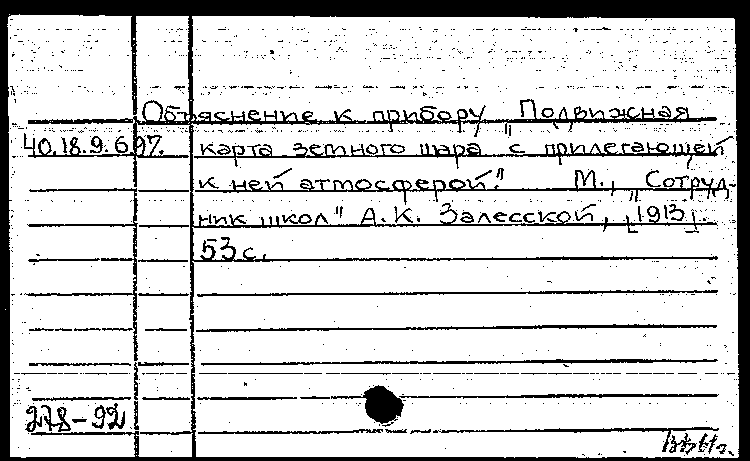 Объяснение к прибору „Подвижная
40.18.9.697. карта земного шара с прилегающей
к ней атмосферой". М., „Сотруд-
ник школ" А.К. Залесской, [1913].
53 с.
278-92